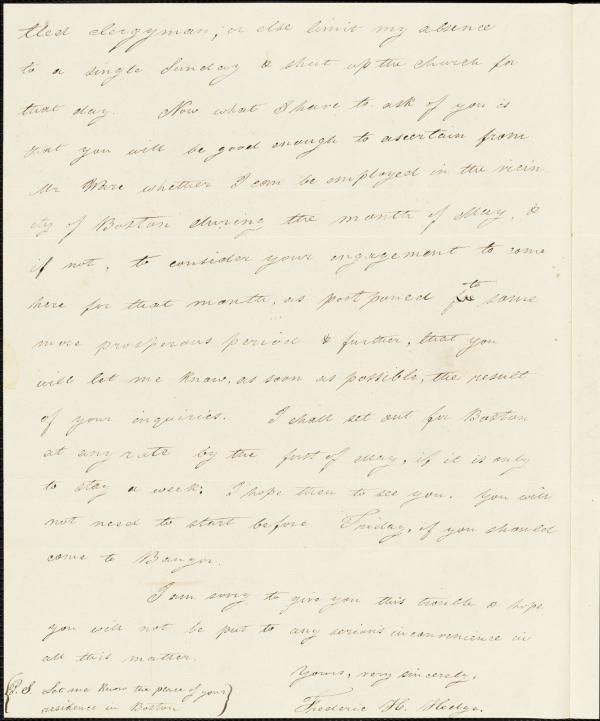 tled clergyman, or else limit my absence
to a single Sunday & shut up the church for
that day. Now what I have to ask of you is
that you will be good enough to ascertain from
Mr Ware whether I can be employed in the vicin
ity of Boston during the month of May, &
if not, to consider your engagement to come
here for that month, as postponed to some
more prosperous period & further, that you
will let me know, as soon as possible, the result
of your inquiries. I shall set out for Boston
at any rate by the first of May, if it is only
to stay a week. I hope then to see you. You will
not need to start before Friday, if you should
come to Bangor.
I am sorry to give you this trouble & hope
you will not be put to any serious inconvenience in
all this matter.
Yours, very sincerely,
Frederic H. Hedge.
(P.S. Let me know the place of your
residence in Boston)